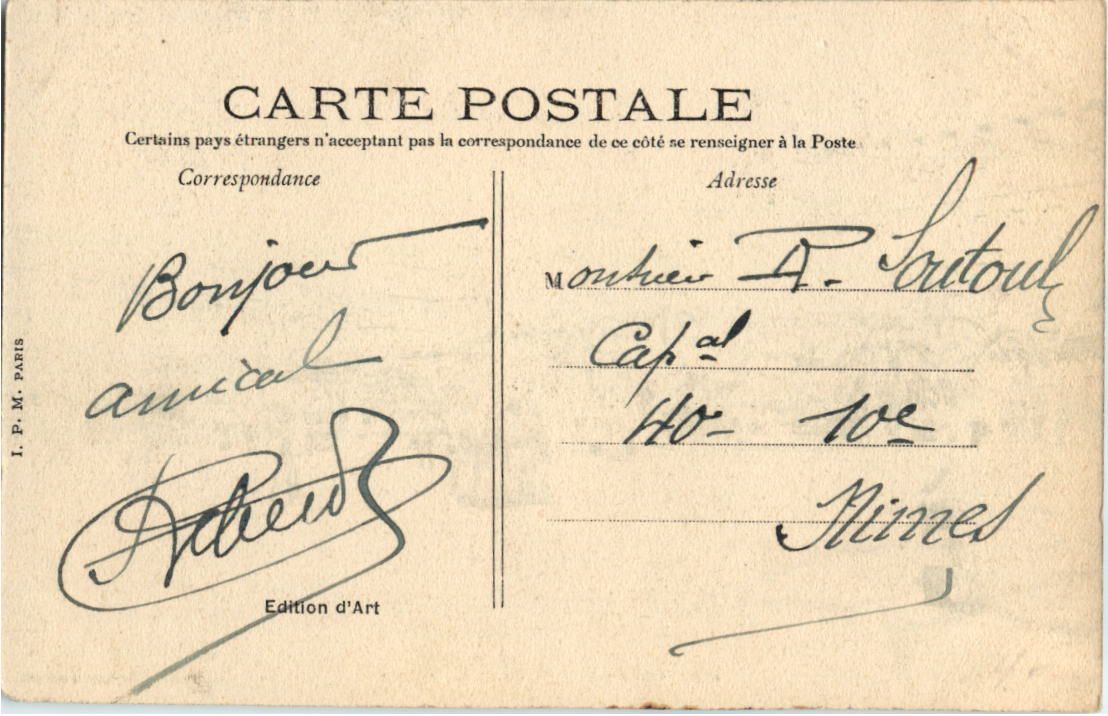 CARTE POSTALE
Certains pays étrangers n'acceptant pas la correspondance de ce côté se renseigner à la Poste
Correspondance
Adresse
Bonjour
amical
Monsieur
Cap al
40 - 10e
Nimes
I. P. M. PARIS
Edition d'Art